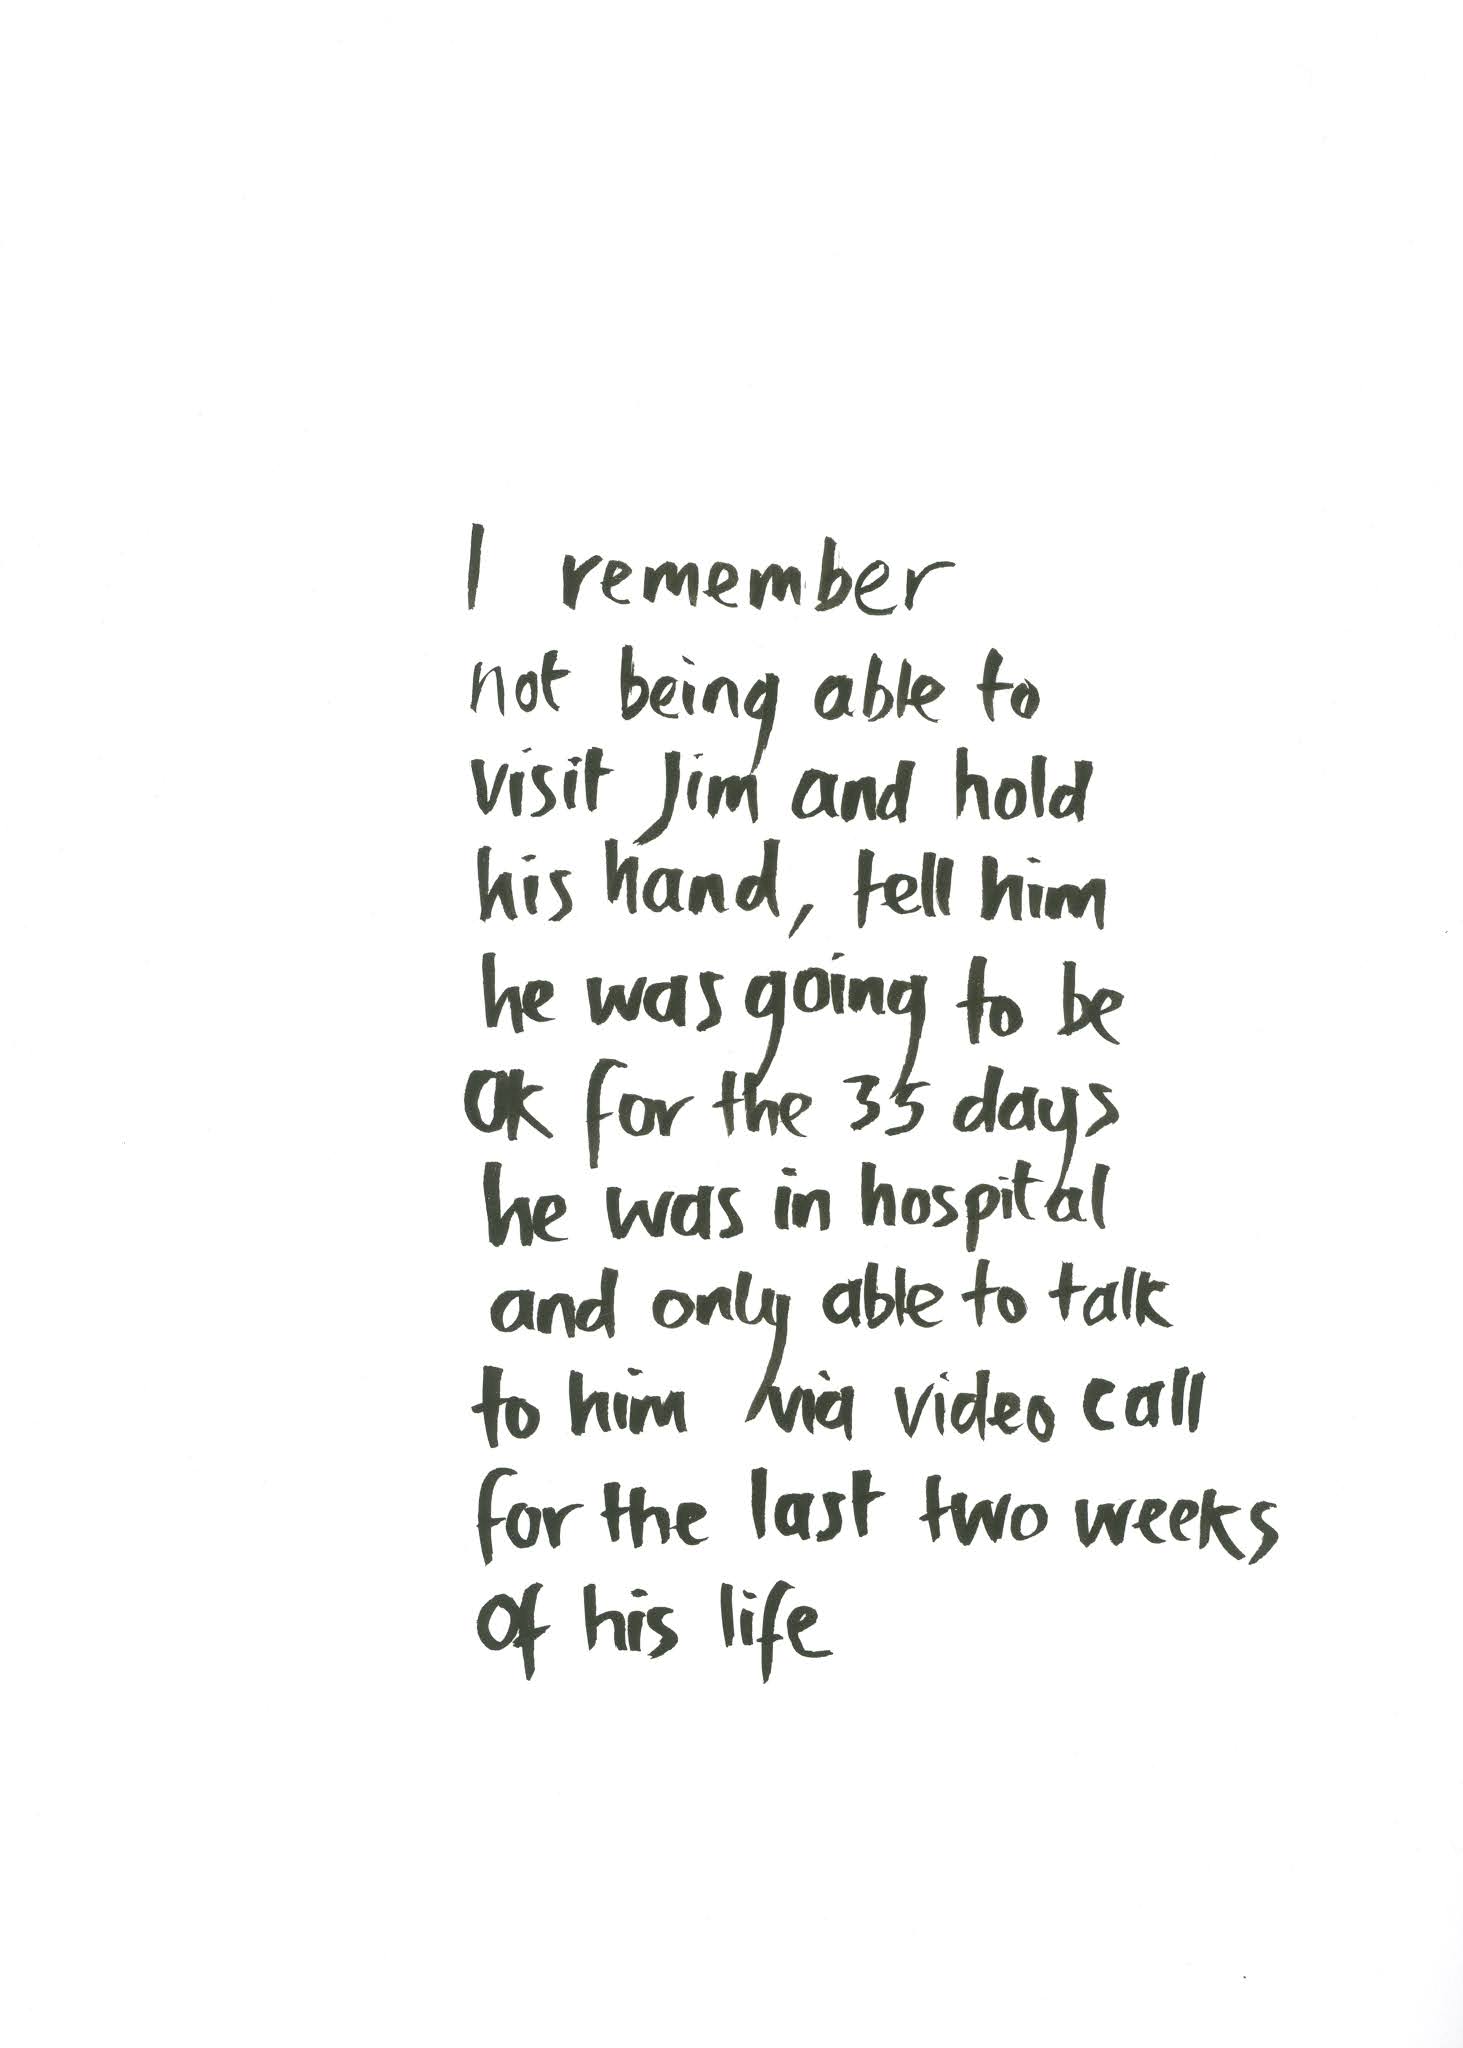 I remember
not being able to
visit Jim and hold
his hand, tell him
he was going to be
ok for the 35 days
he was in hospital
and only able to talk
to him via video call
for the last two weeks
of his life